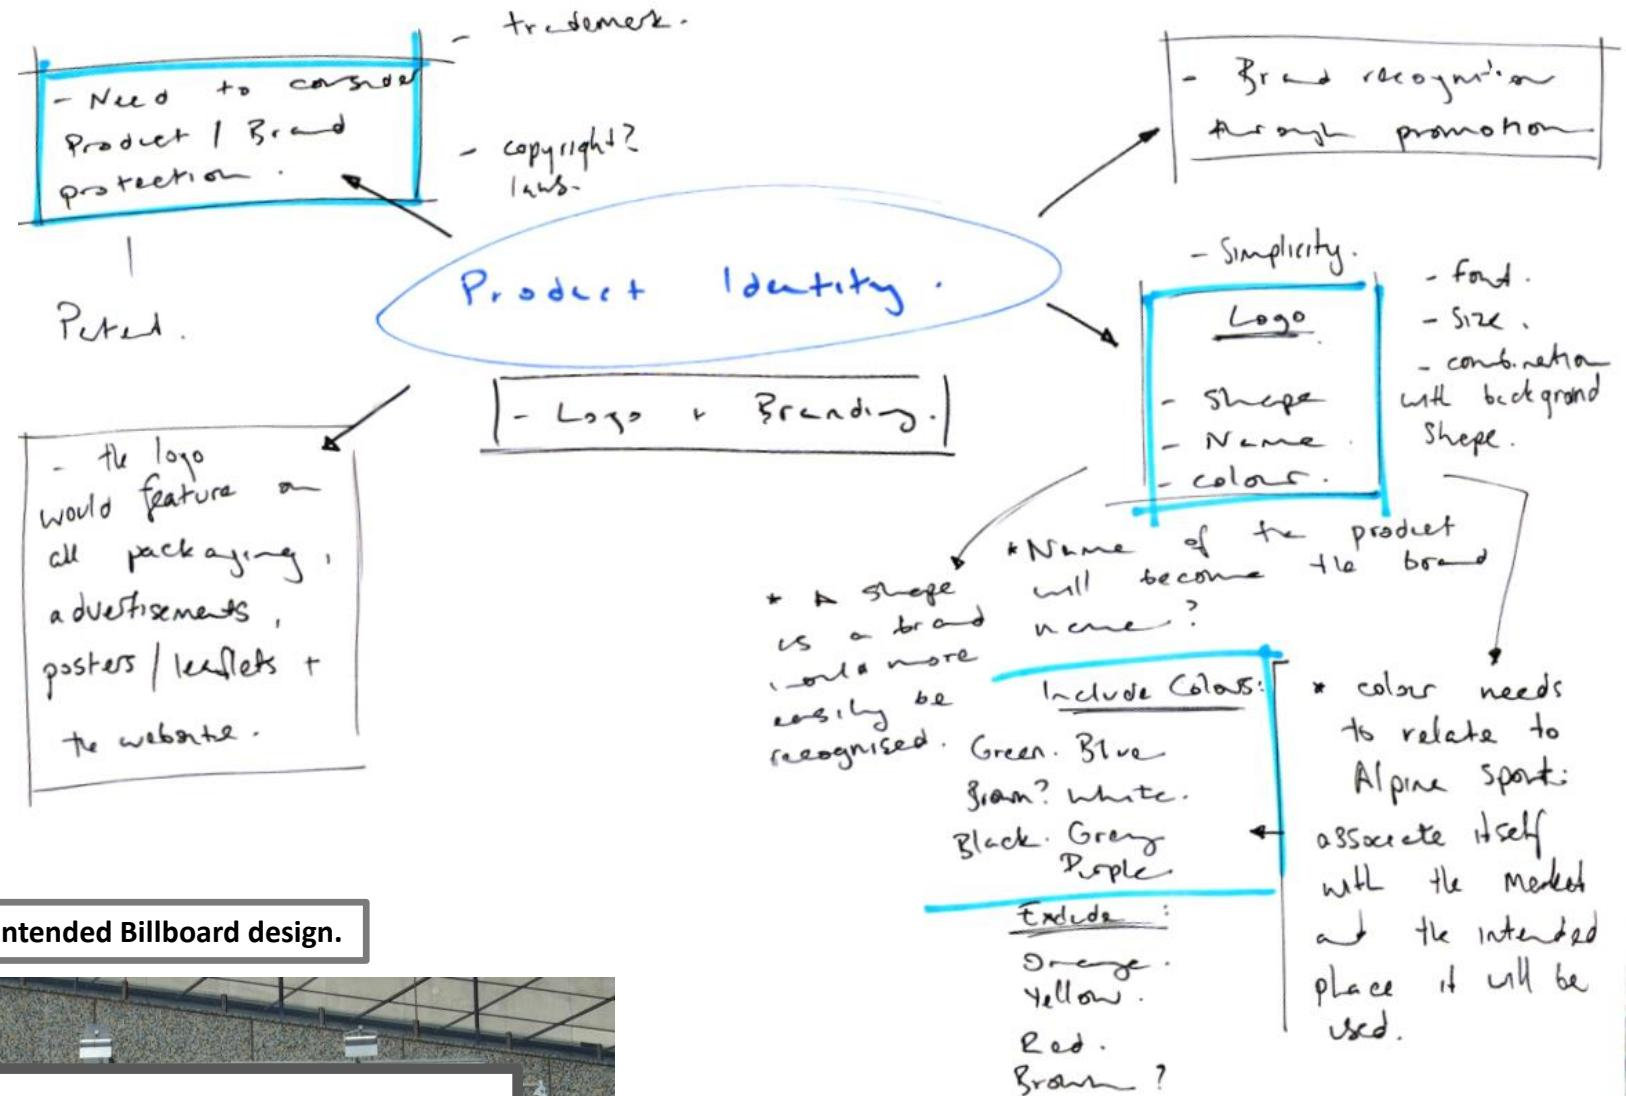 - trademark.
- Need to consider
Product / Brand
protection.
- copyright?
laws.
Patent.
Product Identity.
- Logo + Branding.
- Brand recognition
through promotion
- Simplicity.
Logo
- Shape
- Name.
- colour.
- font.
- Size.
- combination
with background
Shape.
- the logo
would feature on
all packaging,
advertisements,
posters / leaflets +
the website.
* A shape
is a brand
would more
easily be
recognised.
*Name of the product
will become the brand
name?
Include Colours:
Green. Blue
Brown? White.
Black. Grey
Purple.
Exclude:
Orange.
Yellow.
Red.
Brown?
* colour needs
to relate to
Alpine Sport:
associate itself
with the market
and the intended
place it will be
used.
ntended Billboard design.